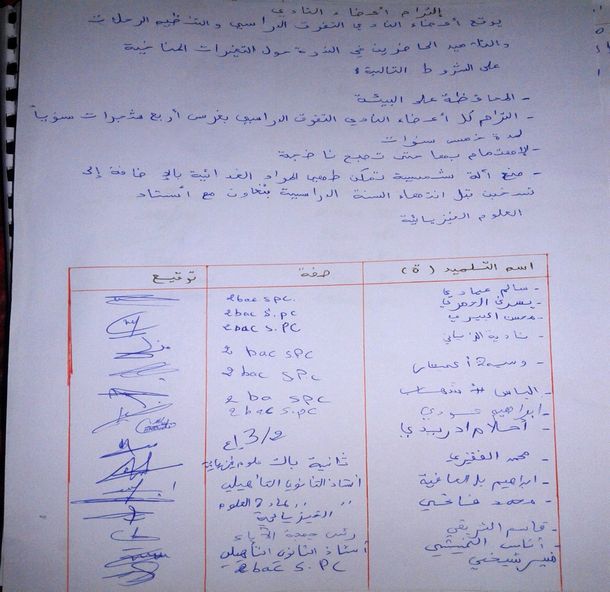 إلتزام أعضاء النادي
يوقع أعضاء النادي التفوق الدراسي والتنظيم الرحلات
والتلاميذ الحاضرين في الندوة حول التغيرات المناخية
على الشروط التالية:
- المحافظة على البيئة
- التزام كل أعضاء النادي التفوق الدراسي بغرس أربع شجيرات سنوياً
لمدة خمس سنوات
- الإهتمام بها حتى تصبح ناضجة
- صنع ألة شمسية تمكن طهي المواد الغذائية بالإضافة إلى
تسخين قبل انتهاء السنة الدراسية بتعاون مع أستاذ
العلوم الفيزيائية
اسم التلميذ (ة) صفة توقيع
- سالم عمادي 2bac SPC.
- يسرى 2bac S.PC
- محسن 2bac S.PC
- نادية 2 bac SPC
- وسيمة 2 bac SPC
- الياس شهاب 2 ba SPC
- ابراهيم 2bac S.PC
- أحلام ادريدي 3/2
- محمد ثانية باك علوم فيزيائية
- ابراهيم أستاذ الثانوي التأهيلي
- محمد مادة العلوم
الفيزيائية
- قاسم رئيس جمعية الآباء
- أناس أستاذ الثانوي التأهيلي
2bac S.PC